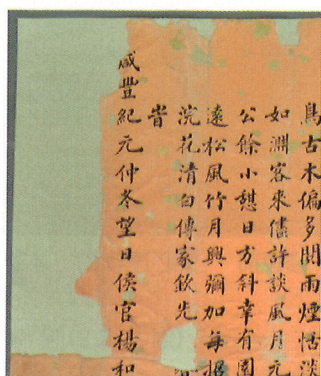 鳥古木偏多閱雨煙恬淡
如淵客來儘許談風月元
公餘小憩日方斜幸有園
遠松風竹月興彌加每招
浣花清白傳家欽先
咸豐紀元仲冬望日侯官楊和